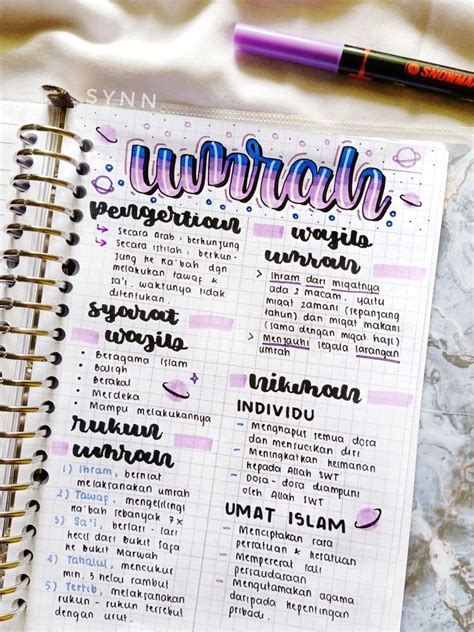 SNOWMAN
SYNN
umrah
pengertian
↳ Secara Arab : berkunjung
↳ Secara istilah : berkun-
jung ke Ka'bah dan
melakukan tawaf &
sa'i. waktunya tidak
ditentukan.
syarat
wajib
• Beragama Islam
• Baligh
• Berakal
• Merdeka
• Mampu melakukannya
rukun
umrah
1) Ihram, berniat
melaksanakan umrah
2) Tawaf, mengelilingi
ka'bah sebanyak 7x
3) Sa'i, berlari - lari
kecil dari Bukit Safa
ke Bukit Marwah
4) Tahalul, mencukur
min. 3 helai rambut
5) Tertib, melaksanakan
rukun - rukun tersebut
dengan urut.
wajib
umrah
> Ihram dari miqatnya
ada 2 macam, yaitu
miqat zamani (sepanjang
tahun) dan miqat makani
(sama dengan miqat haji)
> Menjauhi segala larangan
umrah
hikmah
INDIVIDU
- Menghapus semua dosa
dan mensucikan diri
- Meningkatkan keimanan
kepada Allah SWT
- Dosa - dosa diampuni
oleh Allah SWT
UMAT ISLAM
- Menciptakan rasa
persatuan & kesatuan
- Mempererat tali
persaudaraan
- Mengutamakan agama
daripada kepentingan
pribadi.